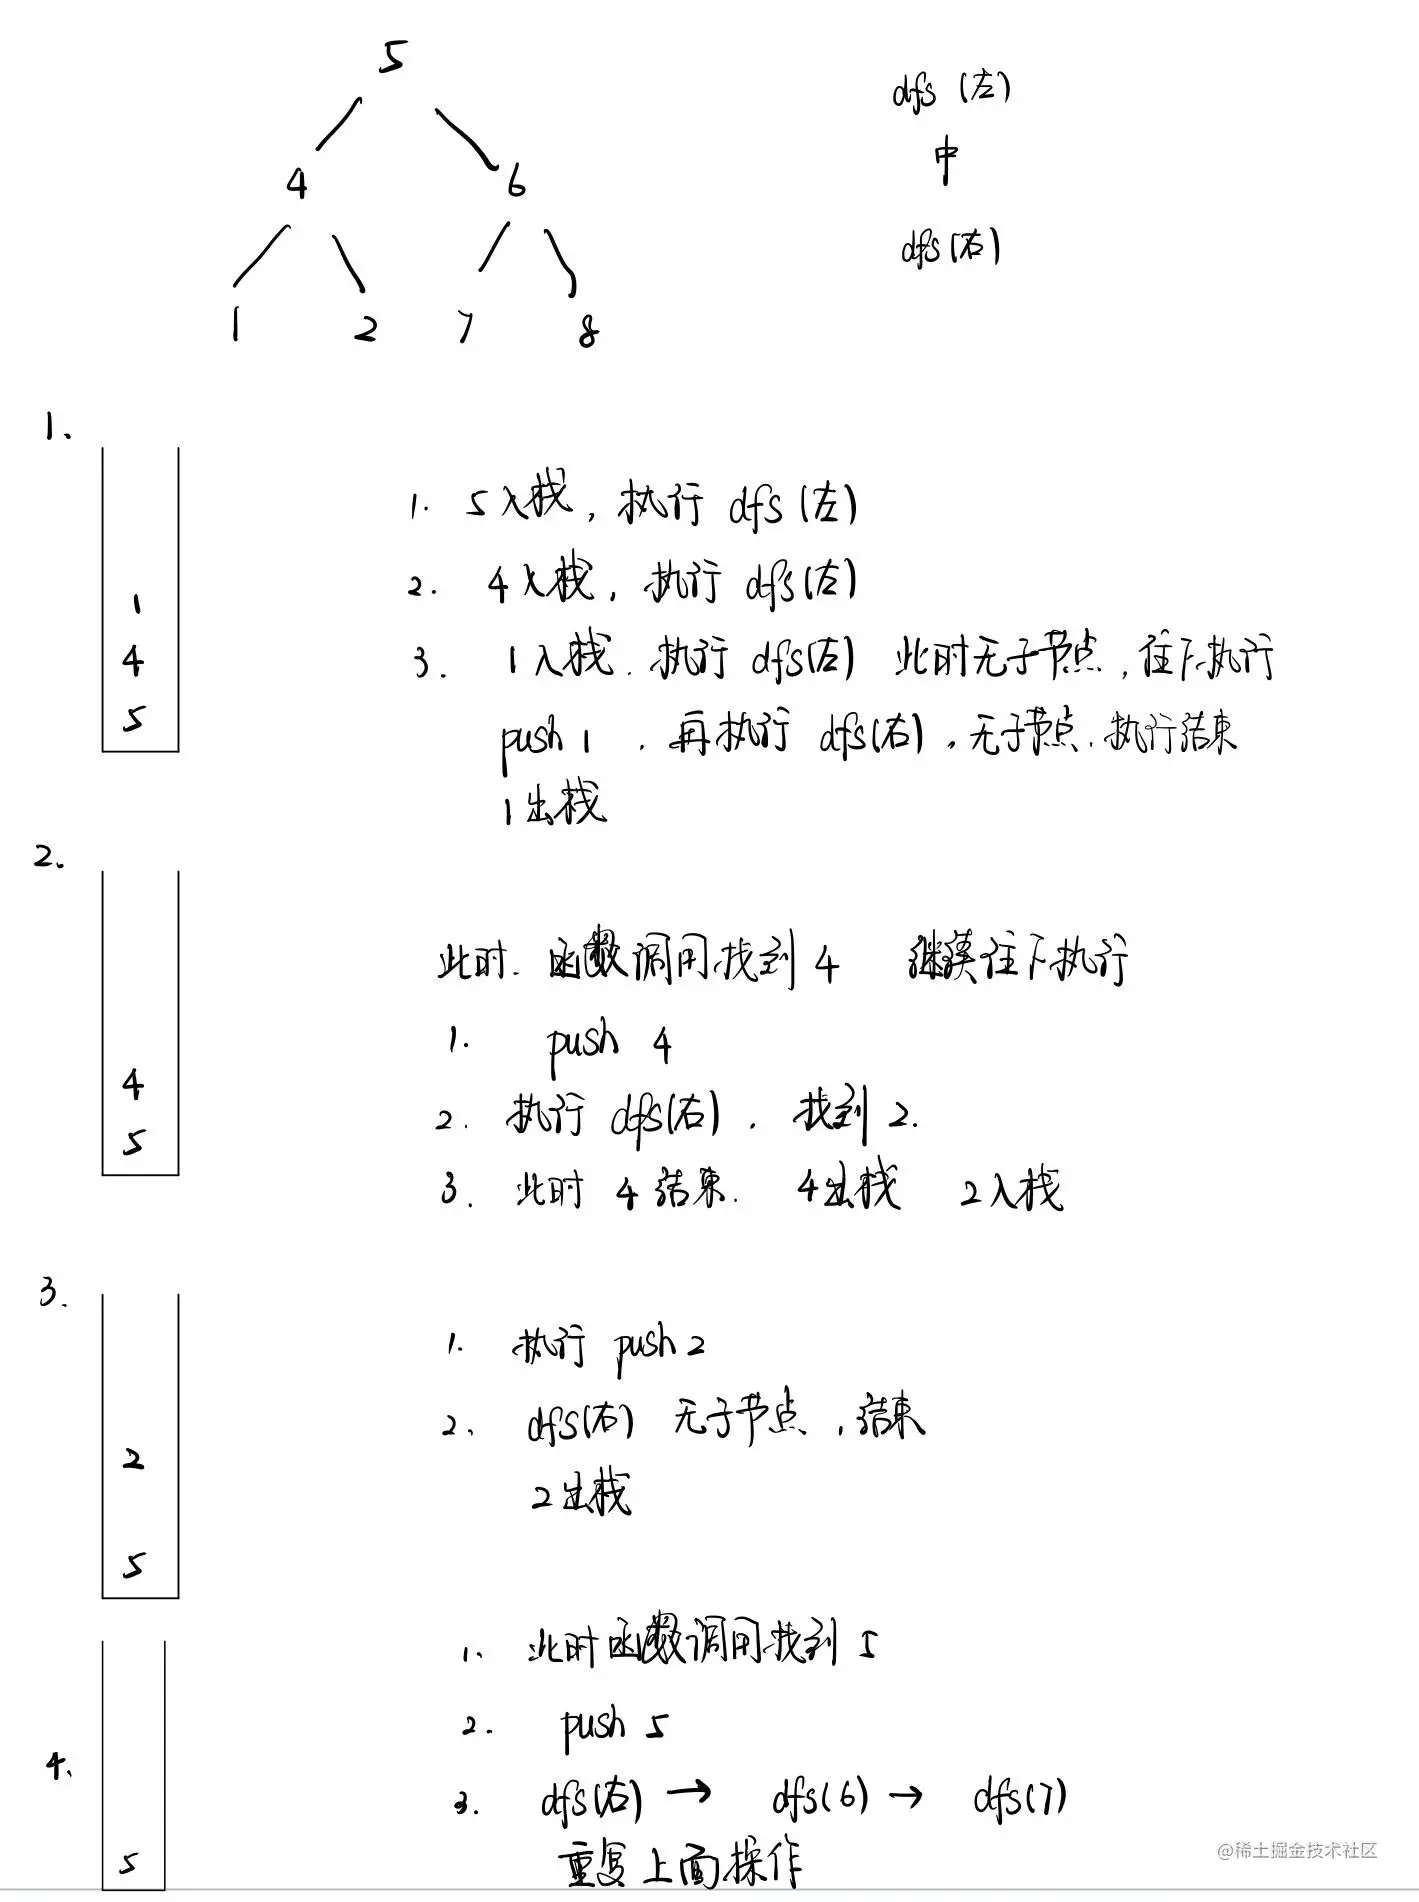 5
dfs (左)
中
4 6
dfs(右)
1 2 7 8
1.
1. 5入栈, 执行 dfs (左)
2. 4入栈, 执行 dfs(左)
1
3. 1入栈. 执行 dfs(左) 此时无子节点, 往下执行
4
push 1 , 再执行 dfs(右), 无子节点. 执行结束
5
1出栈
2.
此时. 函数调用找到 4 继续往下执行
1. push 4
4
2. 执行 dfs(右), 找到 2.
5
3. 此时 4 结束. 4出栈 2入栈
3.
1. 执行 push 2
2. dfs(右) 无子节点, 结束
2
2出栈
5
1. 此时函数调用找到 5
2. push 5
4.
3. dfs(右) → dfs(6) → dfs(7)
5
重复上面操作
@稀土掘金技术社区